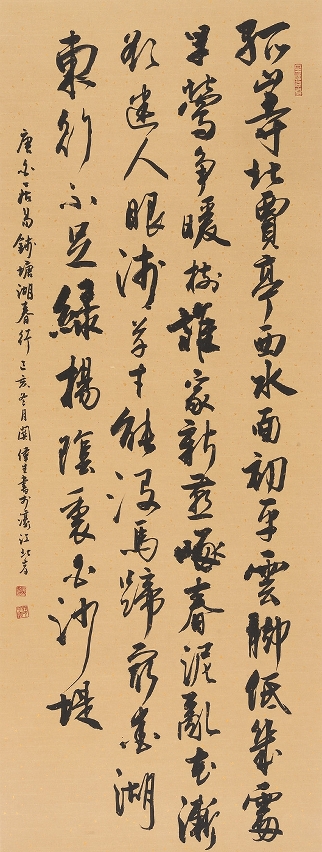 孤山寺北賈亭西水面初平雲脚低幾處
早鶯爭暖樹誰家新燕啄春泥亂花漸
欲迷人眼淺草才能沒馬蹄最愛湖
東行不足綠楊陰裏白沙堤
唐白居易錢塘湖春行 己亥冬月關偉生書於濠江